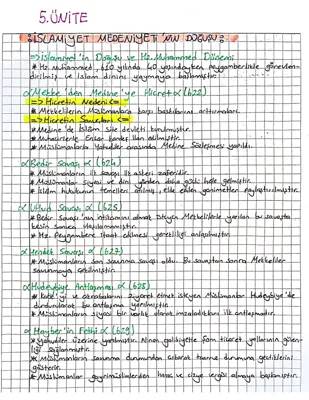 5.ÜNİTE
İSLAMİYET MEDENİYET'İNİN DOĞUŞU
=> İslamiyet'in Doğuşu ve Hz. Muhammed Dönemi
* Hz. Muhammed, 610 yılında 40 yaşındayken peygamberlikle görevlen-
dirilmiş ve İslam dinini yaymaya başlamıştır.
α Mekke'den Medine'ye Hicret α (622)
=> Hicretin Nedeni <=
* Mekkelilerin Müslümanlara karşı baskılarını arttırmaları.
=> Hicretin Sonuçları <=
* Medine'de İslam site devleti kurulmuştur.
* Muhacirlerle Ensar kardeş ilan edilmiştir.
* Müslümanlarla Yahudiler arasında Medine Sözleşmesi yapıldı.
α Bedir Savaşı α (624)
* Müslümanların ilk savaşı ilk askeri zaferidir.
* Müslümanlar siyasi ve dini yönden daha güçlü hale gelmiştir.
* İslam hukukunun temelleri atılmış, elde edilen ganimetler paylaştırılmıştır.
α Uhud Savaşı α (625)
* Bedir Savaşı'nın intikamını almak isteyen Mekkelilerle yapılan bu savaşta
kesin sonuca
* Hz. Peygambere itaat edilmesi gerektiği anlaşılmıştır.
α Hendek Savaşı α (627)
* Müslümanların son savunma savaşı oldu. Bu savaştan sonra Mekkeliler
savunmaya çekilmiştir.
α Hudeybiye Antlaşması α (628)
* Kabe'yi ve akrabalarını ziyaret etmek isteyen Müslümanlar Hudeybiye'de
durdurularak bu antlaşma yapılmıştır.
* Müslümanların siyasi bir varlık olarak imzaladıkları ilk antlaşmadır.
α Hayber'in Fethi α (629)
* Yahudiler üzerine yapılmıştır. Kazanılan galibiyetle Şam ticaret yollarının güven-
liği sağlanmıştır.
* Müslümanların savunma durumundan çıkarak taarruz durumuna geçtiklerini
gösterir.
* Müslümanlar gayrimüslimlerden haraç ve cizye vergisi almaya başlamıştır.